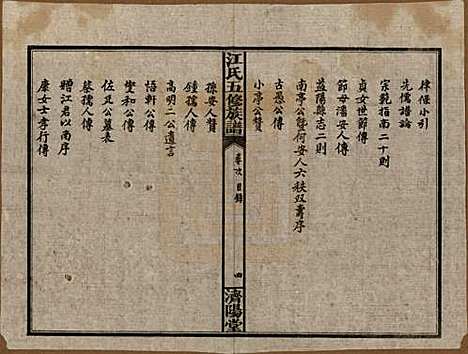 律條小引
先儒譜論
宗範指南二十則
貞女世節傳
節母潘安人傳
益陽縣志二則
南亭公暨何安人六秩双壽序
古愚公傳
小亭公贊
江氏五修族譜
卷次目錄
四
濟陽堂
孫安人贊
鍾孺人傳
高明二公遺言
悟軒公傳
燮和公傳
佐廷公墓表
蔡孺人傳
贈江君以南序
康女士孝行傳